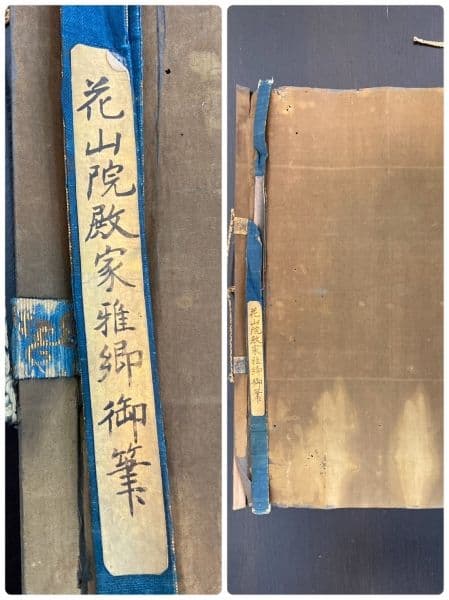 花山院殿家雅卿御筆
花山院殿家雅卿御筆